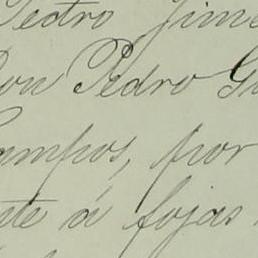 Pedro Jime
Don Pedro Gu
Campos, por
te á fojas